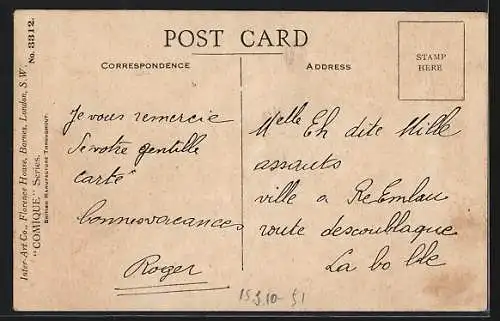 POST CARD
CORRESPONDENCE
ADDRESS
STAMP
HERE
Inter-Art Co., Florence House, Barnes, London, S.W.
"COMIQUE" Series.
No. 3312.
BRITISH MANUFACTURE THROUGHOUT.
Je vous remercie
de votre gentille
carte
bonnes vacances
Roger
Melle Eh dite Mille
assauts
ville a
route
La